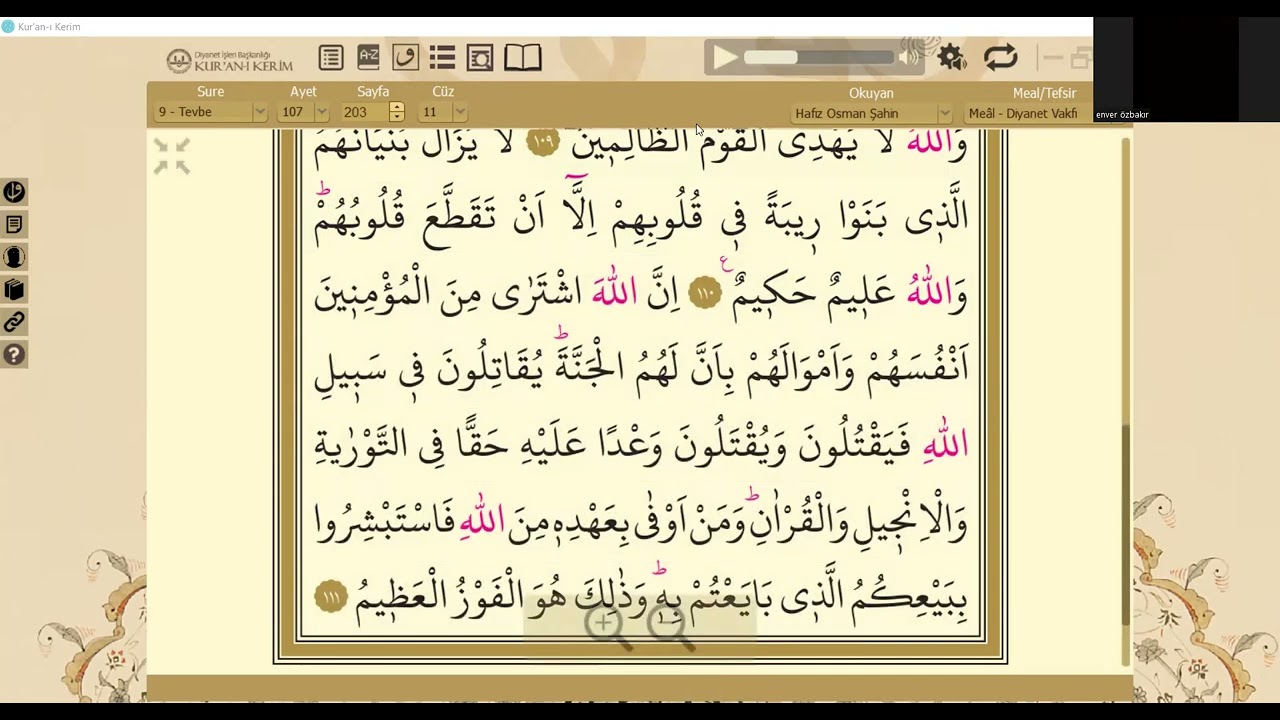 Kur'an-ı Kerim
Diyanet İşleri Başkanlığı
KUR'AN-I KERİM
A-Z
Sure Ayet Sayfa Cüz Okuyan Meal/Tefsir
9 - Tevbe 107 203 11 Hafız Osman Şahin Meâl - Diyanet Vakfı
enver özbakır
وَاللّٰهُ لَا يَهْدِى الْقَوْمَ الظَّالِم۪ينَ ١٠٩ لَا يَزَالُ بُنْيَانُهُمُ
الَّذ۪ى بَنَوْا ر۪يبَةً ف۪ى قُلُوبِهِمْ اِلَّٓا اَنْ تَقَطَّعَ قُلُوبُهُمْۜ
وَاللّٰهُ عَل۪يمٌ حَك۪يمٌ ع ١١٠ اِنَّ اللّٰهَ اشْتَرٰى مِنَ الْمُؤْمِن۪ينَ
اَنْفُسَهُمْ وَاَمْوَالَهُمْ بِاَنَّ لَهُمُ الْجَنَّةَۜ يُقَاتِلُونَ ف۪ى سَب۪يلِ
اللّٰهِ فَيَقْتُلُونَ وَيُقْتَلُونَ وَعْدًا عَلَيْهِ حَقًّا فِى التَّوْرٰيةِ
وَالْاِنْج۪يلِ وَالْقُرْاٰنِۜ وَمَنْ اَوْفٰى بِعَهْدِه۪ مِنَ اللّٰهِ فَاسْتَبْشِرُوا
بِبَيْعِكُمُ الَّذ۪ى بَايَعْتُمْ بِه۪ۜ وَذٰلِكَ هُوَ الْفَوْزُ الْعَظ۪يمُ ١١١